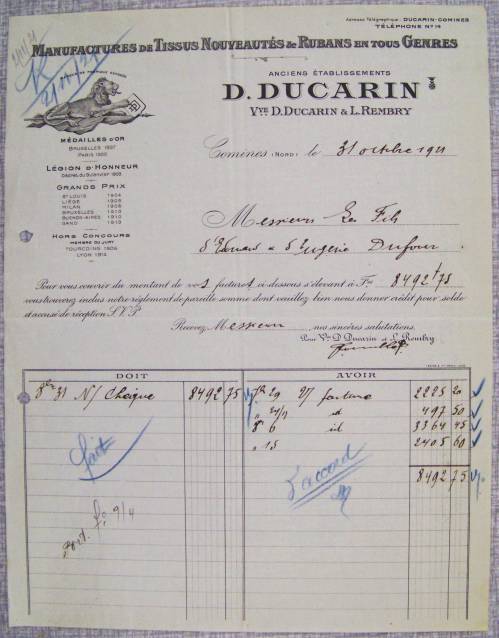 Adresse Télégraphique: DUCARIN-COMINES
TÉLÉPHONE Nº 14
MANUFACTURES DE TISSUS NOUVEAUTÉS & RUBANS EN TOUS GENRES
ANCIENS ÉTABLISSEMENTS
D. DUCARIN
Vve D. DUCARIN & L. REMBRY
MÉDAILLES D'OR
BRUXELLES 1897
PARIS 1900
LÉGION D'HONNEUR
GRANDS PRIX
St LOUIS 1904
LIÈGE 1905
MILAN 1906
BRUXELLES 1910
BUENOS-AIRES 1910
GAND 1913
HORS CONCOURS
MEMBRE DU JURY
TOURCOING 1906
LYON 1914
Comines (NORD) le 31 octobre 1921
Messieurs Les Fils
d'Edouard & d'Eugène Dufour
Pour vous couvrir du montant de vos factures ci dessous s'élevant à Frs 8492,75
vous trouverez inclus notre règlement de pareille somme dont veuillez bien nous donner crédit pour solde
et accusé de réception S.V.P.
Recevez Messieurs, nos sincères salutations.
Pour Vve D. Ducarin & L. Rembry
DOIT AVOIR
8bre 31 N/ Chèque 8492 75 7bre 29 V/ facture 2225 20
" id 497 50
8bre 6 id 3364 45
" 15 2405 60
8492 75
fait
d'accord